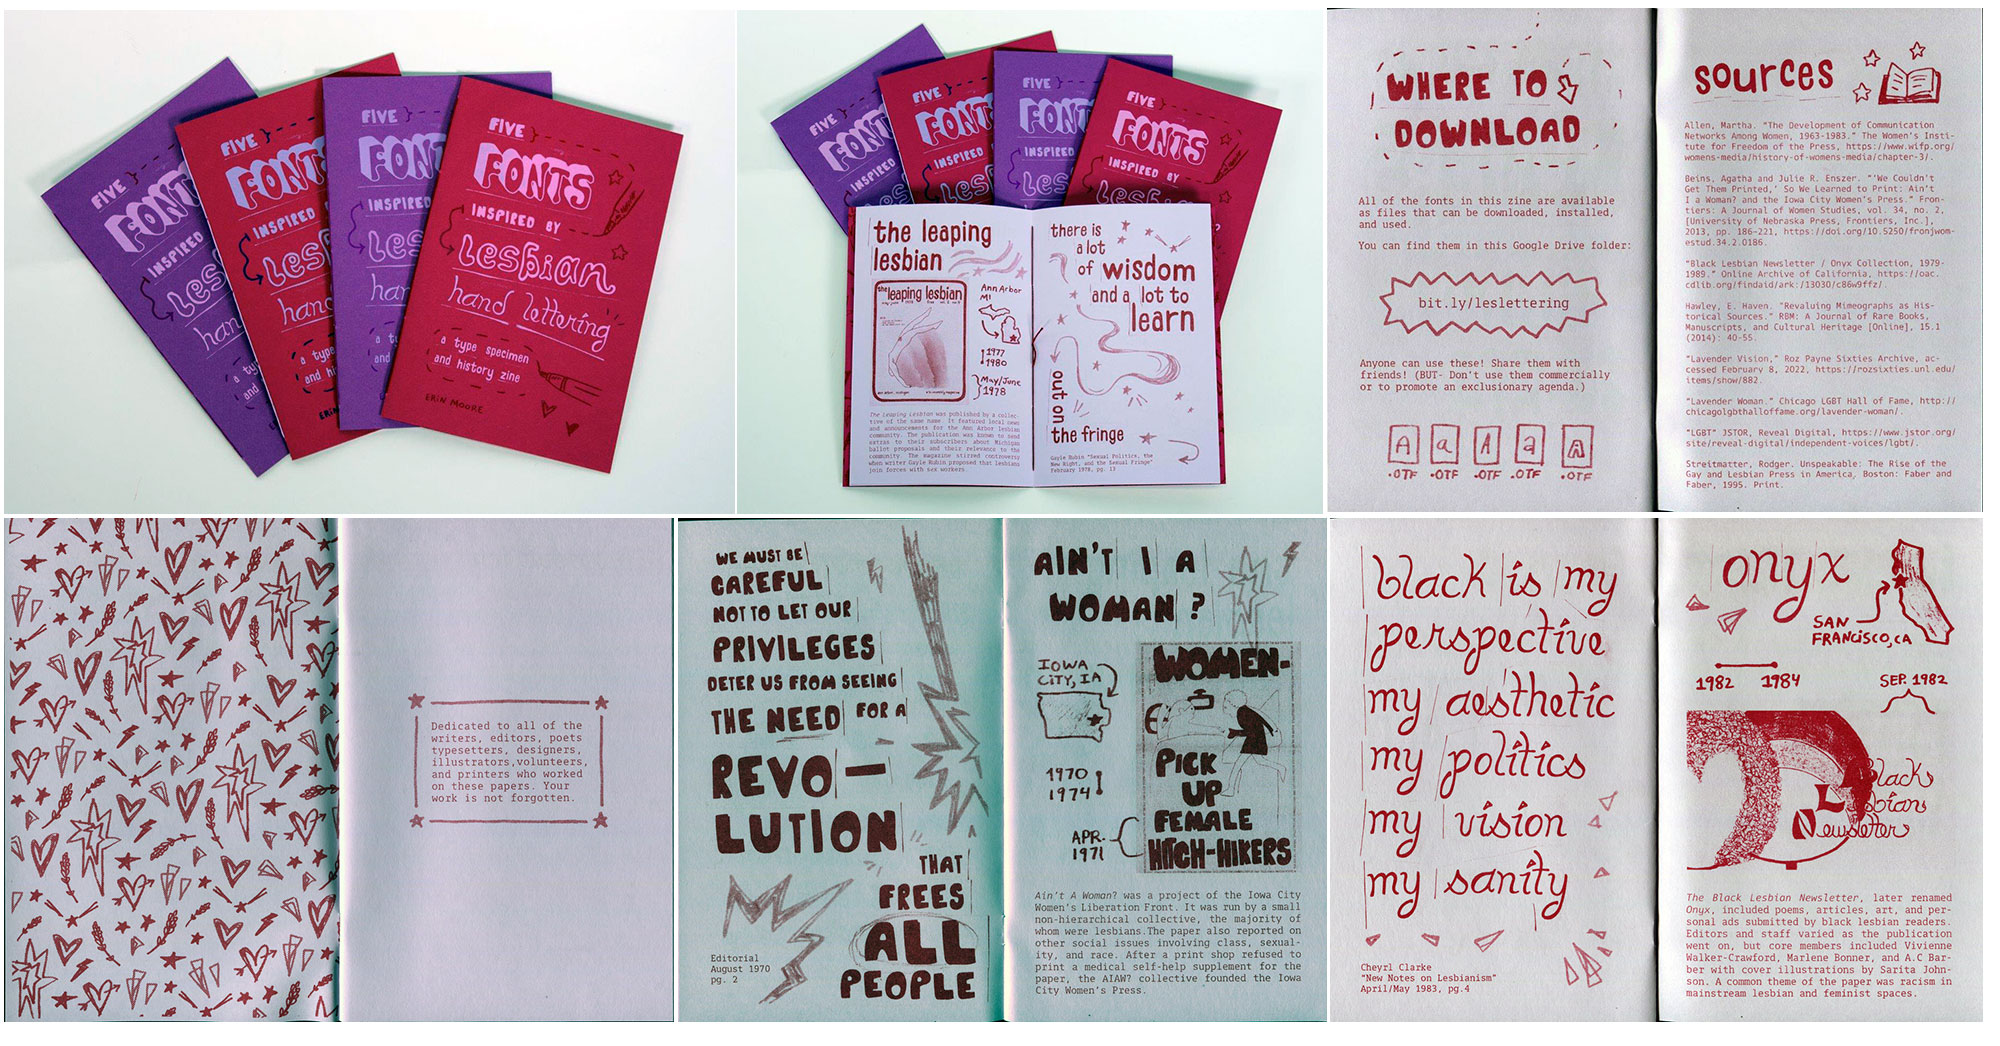 FIVE
FONTS
INSPIRED BY
lesbian
hand lettering
a type specimen
and history zine
ERIN MOORE
FIVE
FONTS
INSPIRED
les
hand
a type
and hi
ERIN
FIVE
FONT
INSPIRED
les
han
a ty
and
FIVE
FONTS
INSPIRED
les
han
a t
and
FIVE
FONTS
INSPIRED BY
lesbian
FIVE
FONTS
INSPIRED BY
lesb
FIVE
FONT
INSPIRED
les
FIVE
FONTS
INSPIRED
les
the leaping
lesbian
the leaping lesbian
Ann Arbor
MI
1977
1980
May/June
1978
The Leaping Lesbian was published by a collec-
tive of the same name. It featured local news
and announcements for the Ann Arbor lesbian
community. The publication was known to send
extras to their subscribers about Michigan
ballot proposals and their relevance to the
community. The magazine stirred controversy
when writer Gayle Rubin proposed that lesbians
join forces with sex workers.
there is
a lot
of wisdom
and a lot to
learn
out on
the fringe
Gayle Rubin "Sexual Politics, the
New Right, and the Sexual Fringe"
February 1978, pg. 13
WHERE TO
DOWNLOAD
All of the fonts in this zine are available
as files that can be downloaded, installed,
and used.
You can find them in this Google Drive folder:
bit.ly/leslettering
Anyone can use these! Share them with
friends! (BUT- Don't use them commercially
or to promote an exclusionary agenda.)
A a A a A
.OTF .OTF .OTF .OTF .OTF
sources
Allen, Martha. "The Development of Communication
Networks Among Women, 1963-1983." The Women's Insti-
tute for Freedom of the Press, https://www.wifp.org/
womens-media/history-of-womens-media/chapter-3/.
Beins, Agatha and Julie R. Enszer. "'We Couldn't
Get Them Printed,' So We Learned to Print: Ain't
I a Woman? and the Iowa City Women's Press." Fron-
tiers: A Journal of Women Studies, vol. 34, no. 2,
[University of Nebraska Press, Frontiers, Inc.],
2013, pp. 186–221, https://doi.org/10.5250/fronjwom-
estud.34.2.0186.
"Black Lesbian Newsletter / Onyx Collection, 1979-
1989." Online Archive of California, https://oac.
cdlib.org/findaid/ark:/13030/c86w9ffz/.
Hawley, E. Haven. "Revaluing Mimeographs as His-
torical Sources." RBM: A Journal of Rare Books,
Manuscripts, and Cultural Heritage [Online], 15.1
(2014): 40-55.
"Lavender Vision," Roz Payne Sixties Archive, ac-
cessed February 8, 2022, https://rozsixties.unl.edu/
items/show/882.
"Lavender Woman." Chicago LGBT Hall of Fame, http://
chicagolgbthalloffame.org/lavender-woman/.
"LGBT" JSTOR, Reveal Digital, https://www.jstor.org/
site/reveal-digital/independent-voices/lgbt/.
Streitmatter, Rodger. Unspeakable: The Rise of the
Gay and Lesbian Press in America, Boston: Faber and
Faber, 1995. Print.
Dedicated to all of the
writers, editors, poets
typesetters, designers,
illustrators,volunteers,
and printers who worked
on these papers. Your
work is not forgotten.
WE MUST BE
CAREFUL
NOT TO LET OUR
PRIVILEGES
DETER US FROM SEEING
THE NEED FOR A
REVO—
LUTION
THAT
FREES
ALL
PEOPLE
Editorial
August 1970
pg. 2
AIN'T I A
WOMAN?
IOWA
CITY, IA
1970
1974
APR.
1971
WOMEN-
PICK
UP
FEMALE
HITCH-HIKERS
Ain't A Woman? was a project of the Iowa City
Women's Liberation Front. It was run by a small
non-hierarchical collective, the majority of
whom were lesbians.The paper also reported on
other social issues involving class, sexual-
ity, and race. After a print shop refused to
print a medical self-help supplement for the
paper, the AIAW? collective founded the Iowa
City Women's Press.
black is my
perspective
my aesthetic
my politics
my vision
my sanity
Cheyrl Clarke
"New Notes on Lesbianism"
April/May 1983, pg.4
onyx
SAN
FRANCISCO,CA
1982 1984
SEP. 1982
Black
Lesbian
Newsletter
The Black Lesbian Newsletter, later renamed
Onyx, included poems, articles, art, and per-
sonal ads submitted by black lesbian readers.
Editors and staff varied as the publication
went on, but core members included Vivienne
Walker-Crawford, Marlene Bonner, and A.C Bar-
ber with cover illustrations by Sarita John-
son. A common theme of the paper was racism in
mainstream lesbian and feminist spaces.